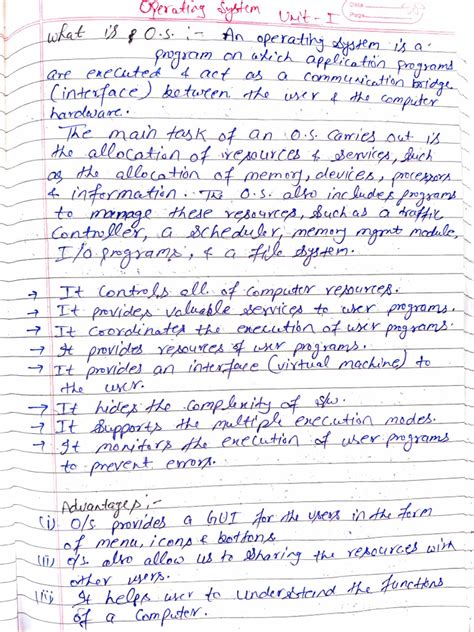 Operating System Unit-I
Date
Page
What is O.S. :- An operating system is a
program on which application programs
are executed & act as a communication bridge
(interface) between the user & the computer
hardware.
The main task of an O.S. carries out is
the allocation of resources & services, such
as the allocation of memory, devices, processors
& information. The O.S. also includes programs
to manage these resources, such as a traffic
controller, a scheduler, memory mgmt module,
I/O programs, & a file system.
→ It controls all of computer resources.
→ It provides valuable services to user programs.
→ It coordinates the execution of user programs.
→ It provides resources of user programs.
→ It provides an interface (virtual machine) to
the user.
→ It hides the complexity of s/w.
→ It supports the multiple execution modes.
→ It monitors the execution of user programs
to prevent errors.
Advantages :-
(i) O/S provides a GUI for the users in the form
of menu, icons & bottons.
(ii) O/S also allow us to sharing the resources with
other users.
(iii) It helps user to understand the functions
of a Computer.